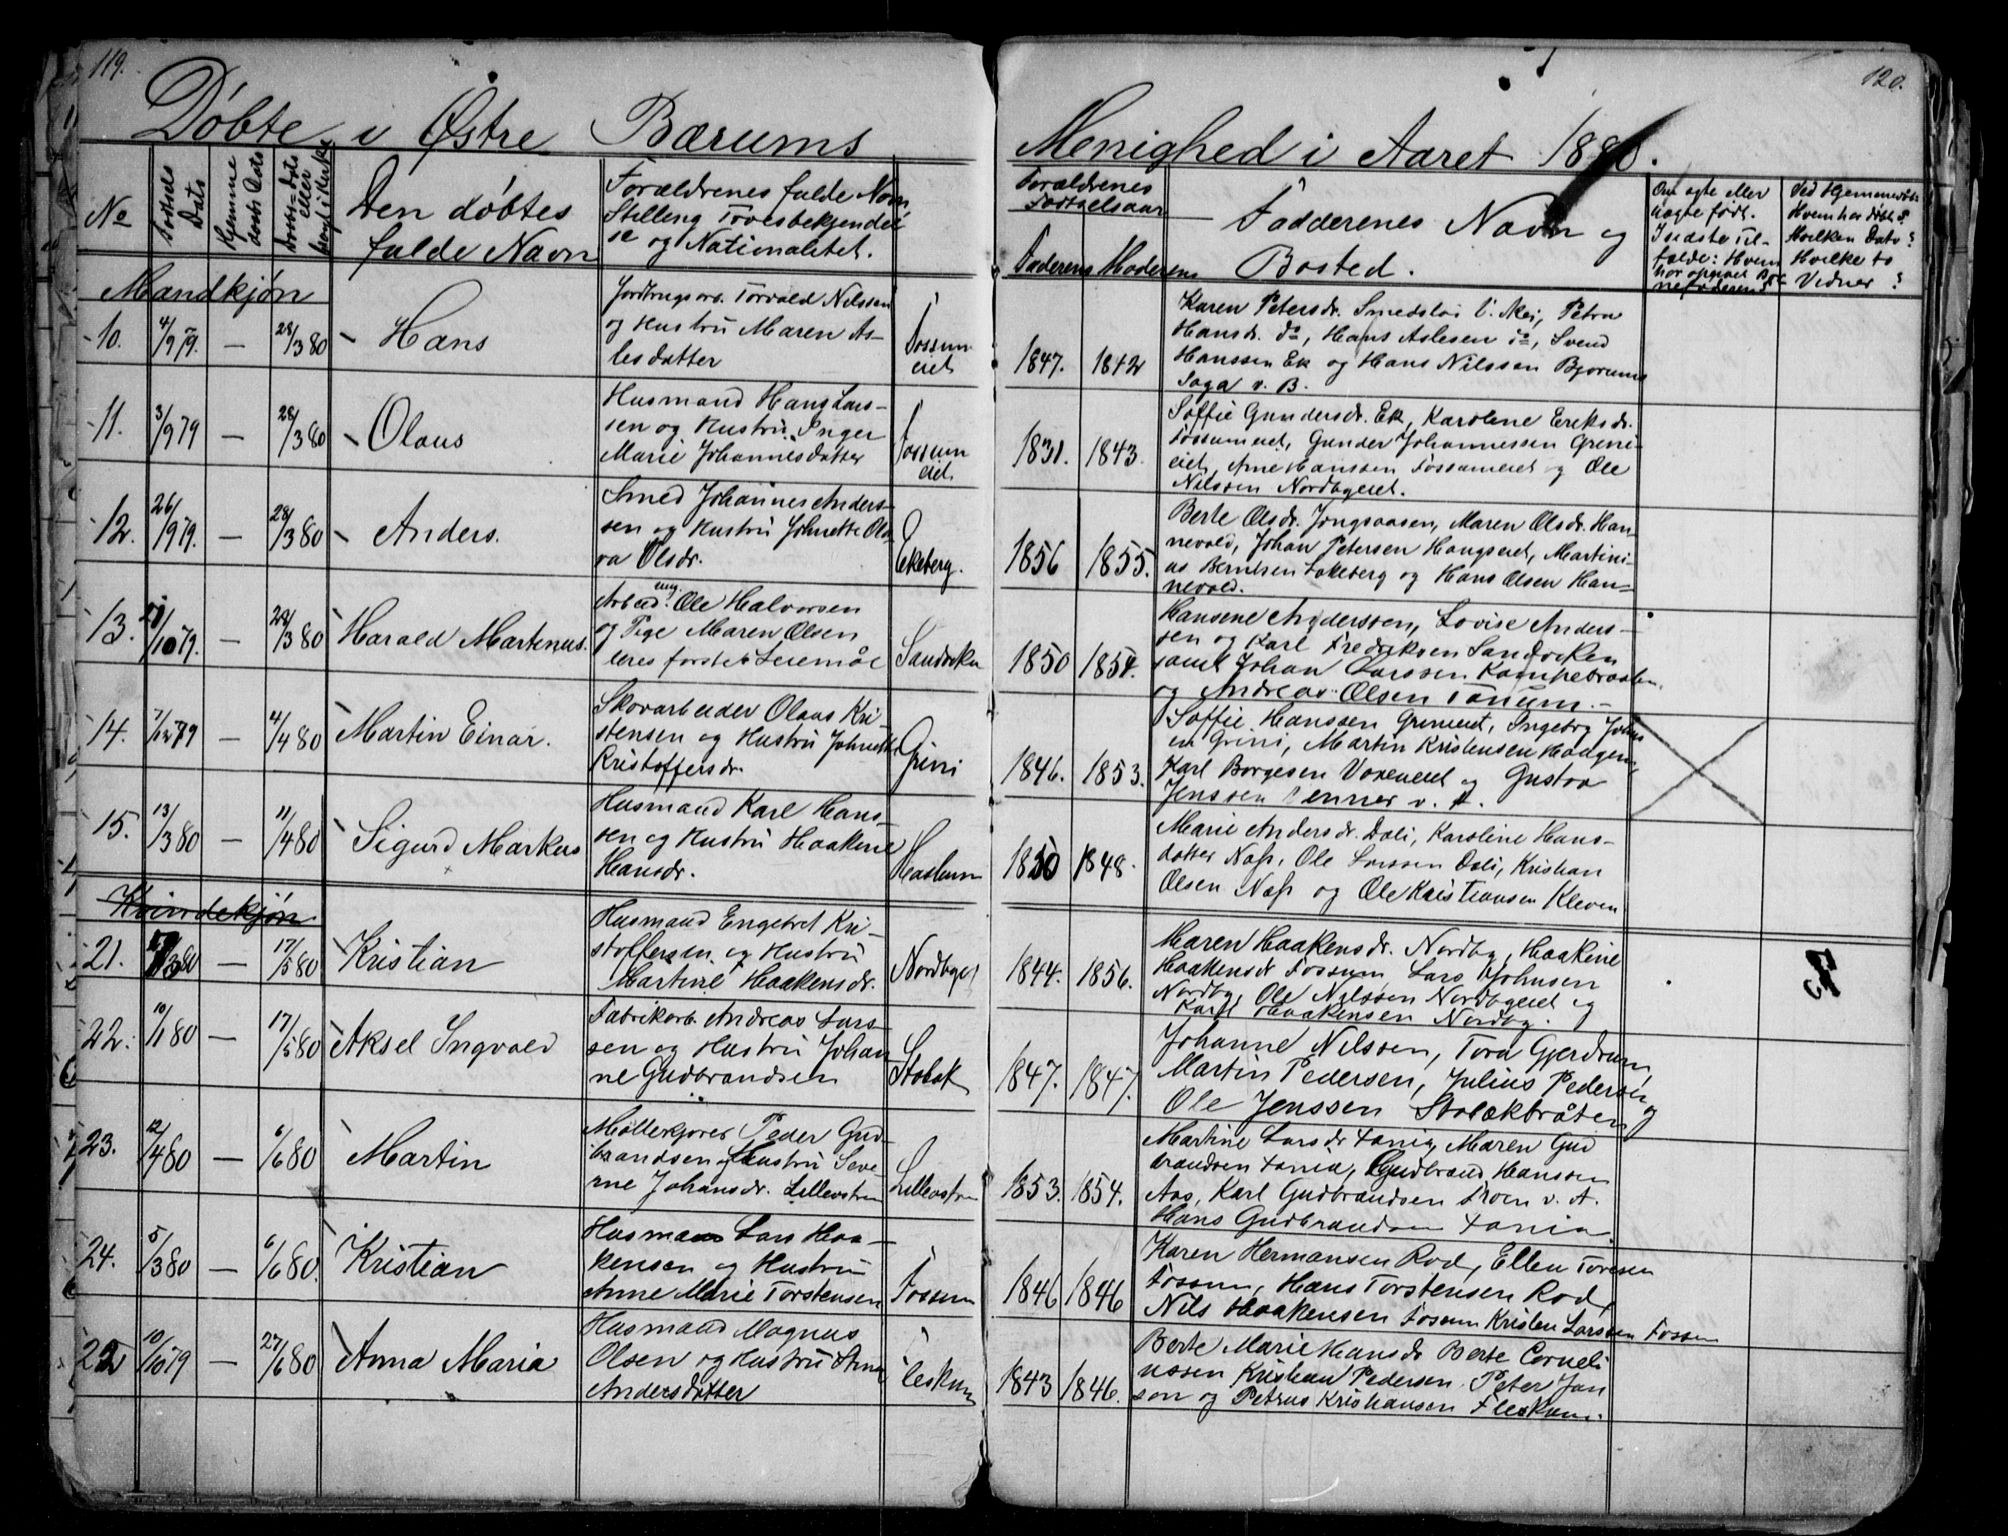 119.
120.
Døbte i Østre Bærums
Menighed i Aaret 1880.
No
Fødsels Dato
Hjemme døbt Dato
Daabs-Dato eller
Den døbtes
fulde Navn
Forældrenes fulde Navn
Stilling Trosbekjendel
se og Nationalitet.
Forældrenes
Fødselsaar
Faderens Moderens
Fadderenes Navn og
Bosted.
Om ægte eller
uægte født.
I sidste Til-
fælde: Hvem
har opgivet Bar
nefaderen?
Ved Hjemmedøbte
Hvem har døbt?
Hvilken Dato?
Hvilke to
Vidner?
Mandkjøn
10.
4/9 79.
—
28/3 80
Hans
Jordbrugsarb. Torvald Nilssen
og Hustru Maren As-
lesdatter
Fossum
eiet
1847.
1842
Karen Petersdr. Smedsløs V. Aker, Petra
Hansdr. do, Hans Aslesen do, Svend
Hanssen Ek og Hans Nilssen Bjorums
Saga v. B.
11.
3/9 79
—
28/3 80
Olaus
Husmand Hans Lars-
sen og Hustru Inger
Marie Johannesdatter
Fossum
eiet
1831.
1843.
Soffie Gundersdr. Ek, Karolene Eriksdr.
Fossumeiet, Gunder Johannessen Grini-
eiet, Arne Hanssen Fossumeiet og Ole
Nilssen Nordbyeiet.
12.
26/9 79.
—
28/3 80
Anders.
Smed Johannes Anders-
sen og Hustru Johnette Ola
va Olsdr.
Ekeberg.
1856
1855.
Berte Olsdr. Jongsaasen, Maren Olsdr. Han-
nevold, Johan Petersen Haugseiet, Martini-
us Berntsen Løkeberg og Hans Olsen Han-
nevold.
13.
/10 79.
—
28/3 80
Harald Martinus.
Arbeid. ung Ole Halvorsen
og Pige Maren Olsen
deres første Leiemål
Sandviken
1850
1854.
Hansene Anderssen, Lovise Anders-
sen og Karl Fredriksen Sandviken
samt Johan Larssen Kampebraaten
og Andreas Olsen Tanum.-
14.
7/12 79
—
4/4 80
Martin Einar.
Skovarbeider Olaus Kri-
stensen og Hustru Johnette
Kristoffersdr.
Grini
1846.
1853.
Soffie Hanssen Grinieiet, Ingeborg Johns
en Grini, Martin Kristensen Haugen,
Karl Borgesen Voxeneiet og Gustav
Jenssen v. A.
15.
13/3 80
—
11/4 80
Sigurd Markus
Husmand Karl Hans-
sen og Hustru Haakene
Hansdr.
Haslum
1850
1848.
Marie Andersdr. Dæli, Karoline Hans-
datter Næss, Ole Larssen Dæli, Kristian
Olsen Næss og Ole Kristiansen Kleven
Kvindekjøn
21.
/3 80
—
17/5 80
Kristian
Husmand Engebret Kri-
stoffersen og Hustru
Martine Haakensdr.
Nordbyei
1844.
1856.
Maren Haakensdr. Nordby, Haakine
Haakensdr Fossum Lars Johnsen
Nordby, Ole Nilssen Nordbyeiet og
Karl Haakensen Nordby.
22.
10/1 80
—
17/5 80
Aksel Ingvald
Fabrikarb. Andreas Lars-
sen og Hustru Johan
ne Gudbrandsen
Stabæk
1847.
1847.
Johanne Nilssen, Tora Gjerdrum,
Martin Pedersen, Julius Pedersen og
Ole Jenssen Stabækbråten
23.
12/4 80
—
6/6 80
Martin
Møllekjører Peder Gud-
brandsen og Hustru Seve-
rine Johansdr. Lilleøstern
Lilleøstern
1853.
1854.
Martine Larsdr Fania, Maren Gud
brandsen Fania, Gudbrand Hanssen
Aas, Karl Gudbrandsen Roen v. A.
Hans Gudbrandsen Fania.
24.
5/3 80
—
6/6 80.
Kristian
Husmand Lars Haa-
kensen og Hustru
Anne Marie Torstensen
Fossum
1846
1846
Karen Hermansen Rød, Ellen Toresen
Fossum, Hans Torstensen Rød,
Nils Haakensen Fossum Kristen Larssen Fossum
10/10 79
—
27/6 80
Anna Maria
Husmand Magnus
Olsen og Hustru Anne
Andersdatter
Fleskum
1843
1846.
Berte Marie Hansdr Berte Corneli
ussen Kristian Pedersen Peter Jan
sen og Petrus Kristiansen Fleskum.